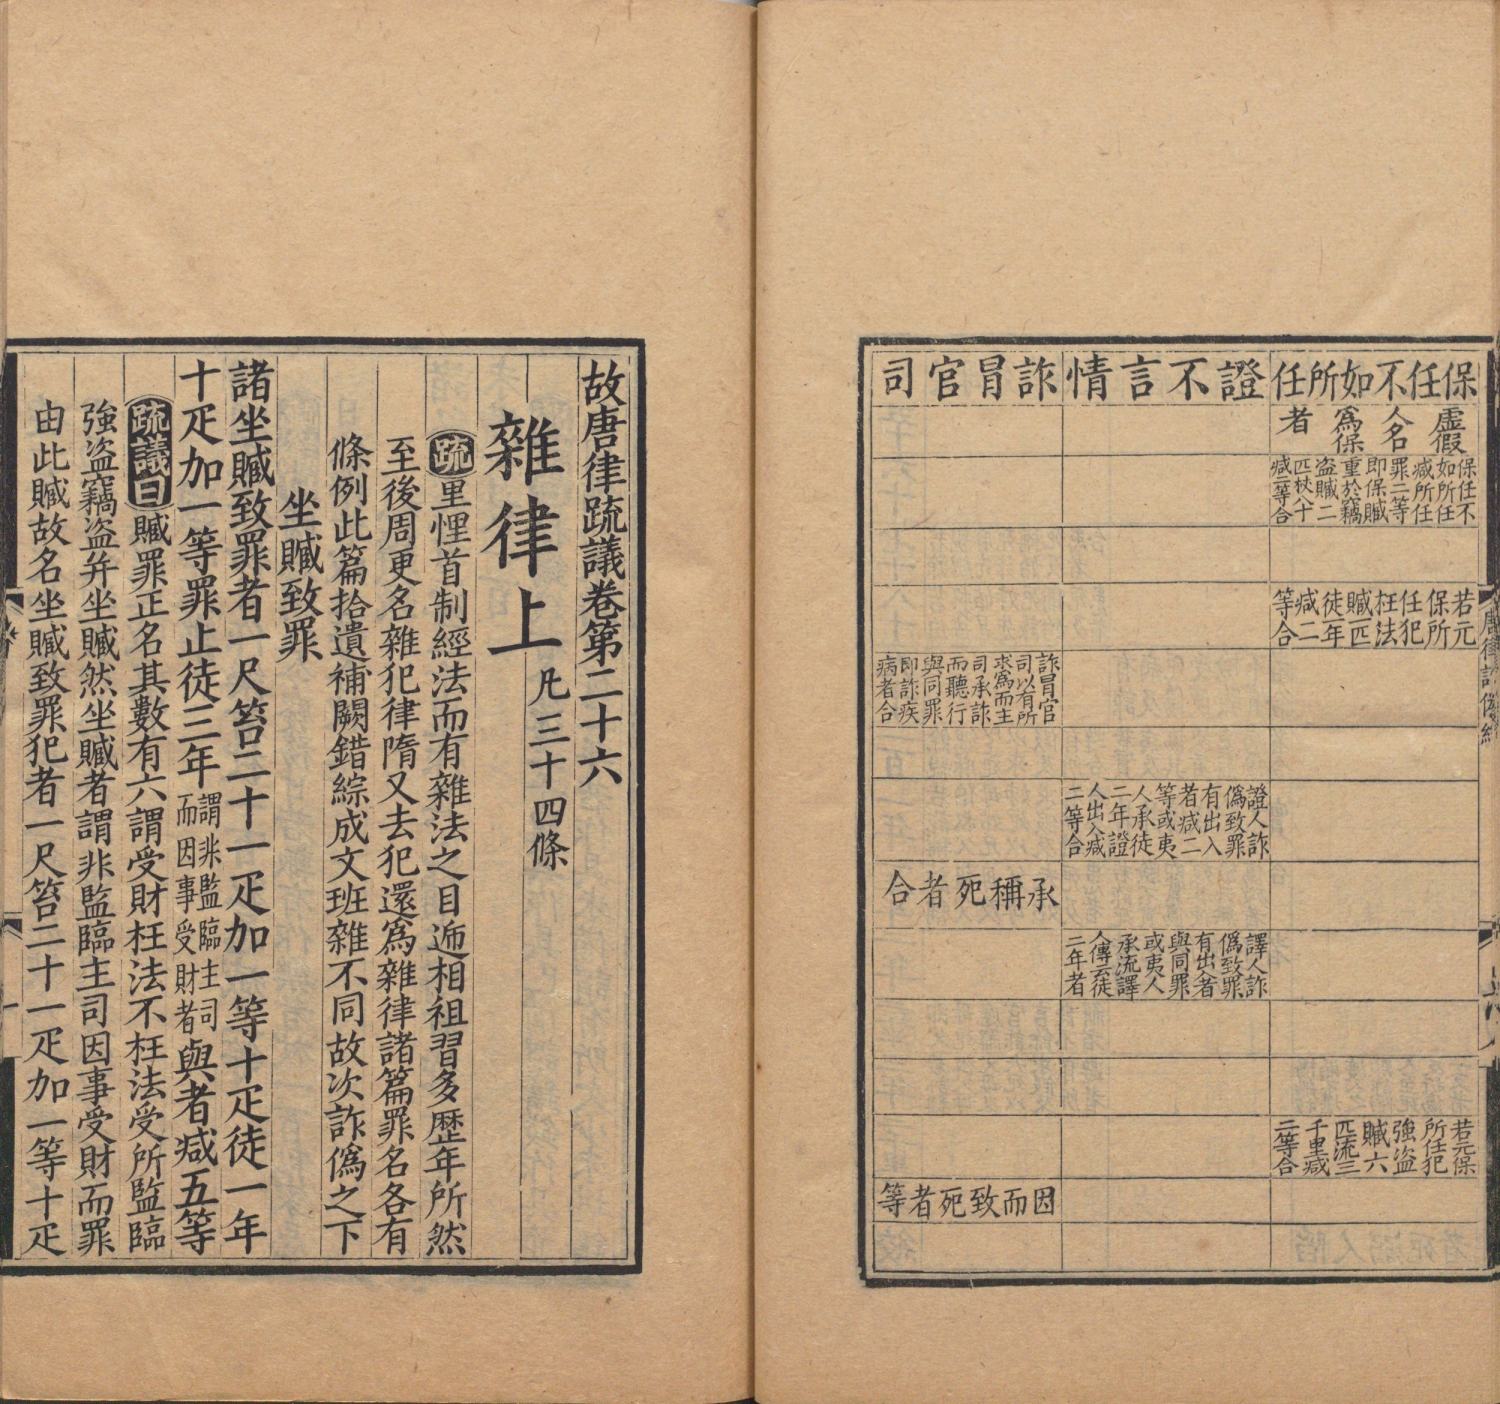 保任不如所任
虛假
人名
爲保
者
保任不
如所任
減所任
罪二等
即保贓
重於竊
盜贓二
匹杖八十
減二等合
若元
保所
任犯
枉法
贓一匹
徒一年
減二
等合
若元保
所任犯
強盜
贓六
匹流三
千里減
二等合
證不言情
證人詐
僞致罪
有出入
者減二
等或夷
人承徒
二年證
人出入減
二等合
譯人詐
僞致罪
有出入者
與同罪
或夷人
承流譯
人傳云徒
二年者
詐冒官司
詐冒官
司以有所
求爲而主
司承詐
而聽行
與同罪
即詐疾
病者合
承稱死者合
因而致死者等
故唐律疏議卷第二十六
雜律上 凡三十四條
疏里悝首制經法而有雜法之目逓相祖習多歷年所然
至後周更名雜犯律隋又去犯還爲雜律諸篇罪名各有
條例此篇拾遺補闕錯綜成文班雜不同故次詐僞之下
坐贓致罪
諸坐贓致罪者一尺笞二十一疋加一等十疋徒一年
十疋加一等罪止徒三年謂非監臨主司而因事受財者與者減五等
疏議曰贓罪正名其數有六謂受財枉法不枉法受所監臨
強盜竊盜并坐贓然坐贓者謂非監臨主司因事受財而罪
由此贓故名坐贓致罪犯者一尺笞二十一疋加一等十疋